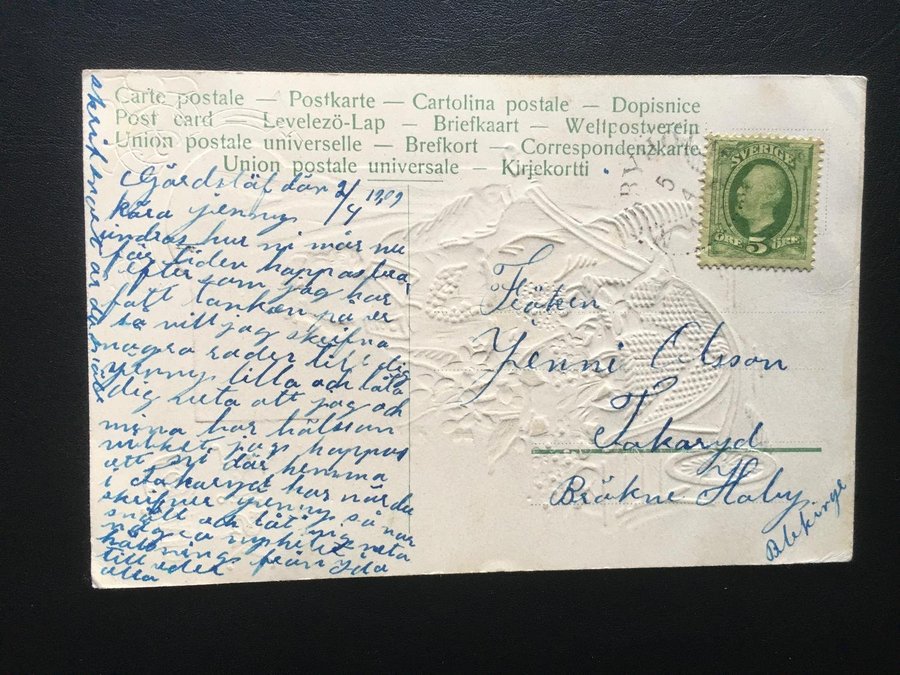 Carte postale — Postkarte — Cartolina postale — Dopisnice
Post card — Levelezö-Lap — Briefkaart — Weltpostverein
Union postale universelle — Brefkort — Correspondenzkarte
Union postale universale — Kirjekortti
SVERIGE
ÖRE 5 ÖRE
BRY
5
2/4 1909
kära jenny
undras hur ni mår nu
för tiden hoppas bra
efter som jag har
fått tankan på er
så vill jag skrifva
några rader till dig
jenny lilla och låta
dig veta att jag och
mina har hälsan
mycket jags hoppas
att ni där hemma
i Takaryd har när du
skrifver jenny så var
snäll och låt mig veta
några nyheter
hälsnings från Ida
till eder
alla
skrif snart
Fröken
Jenni Olsson
Takaryd
Bräkne Hoby
Blekinge